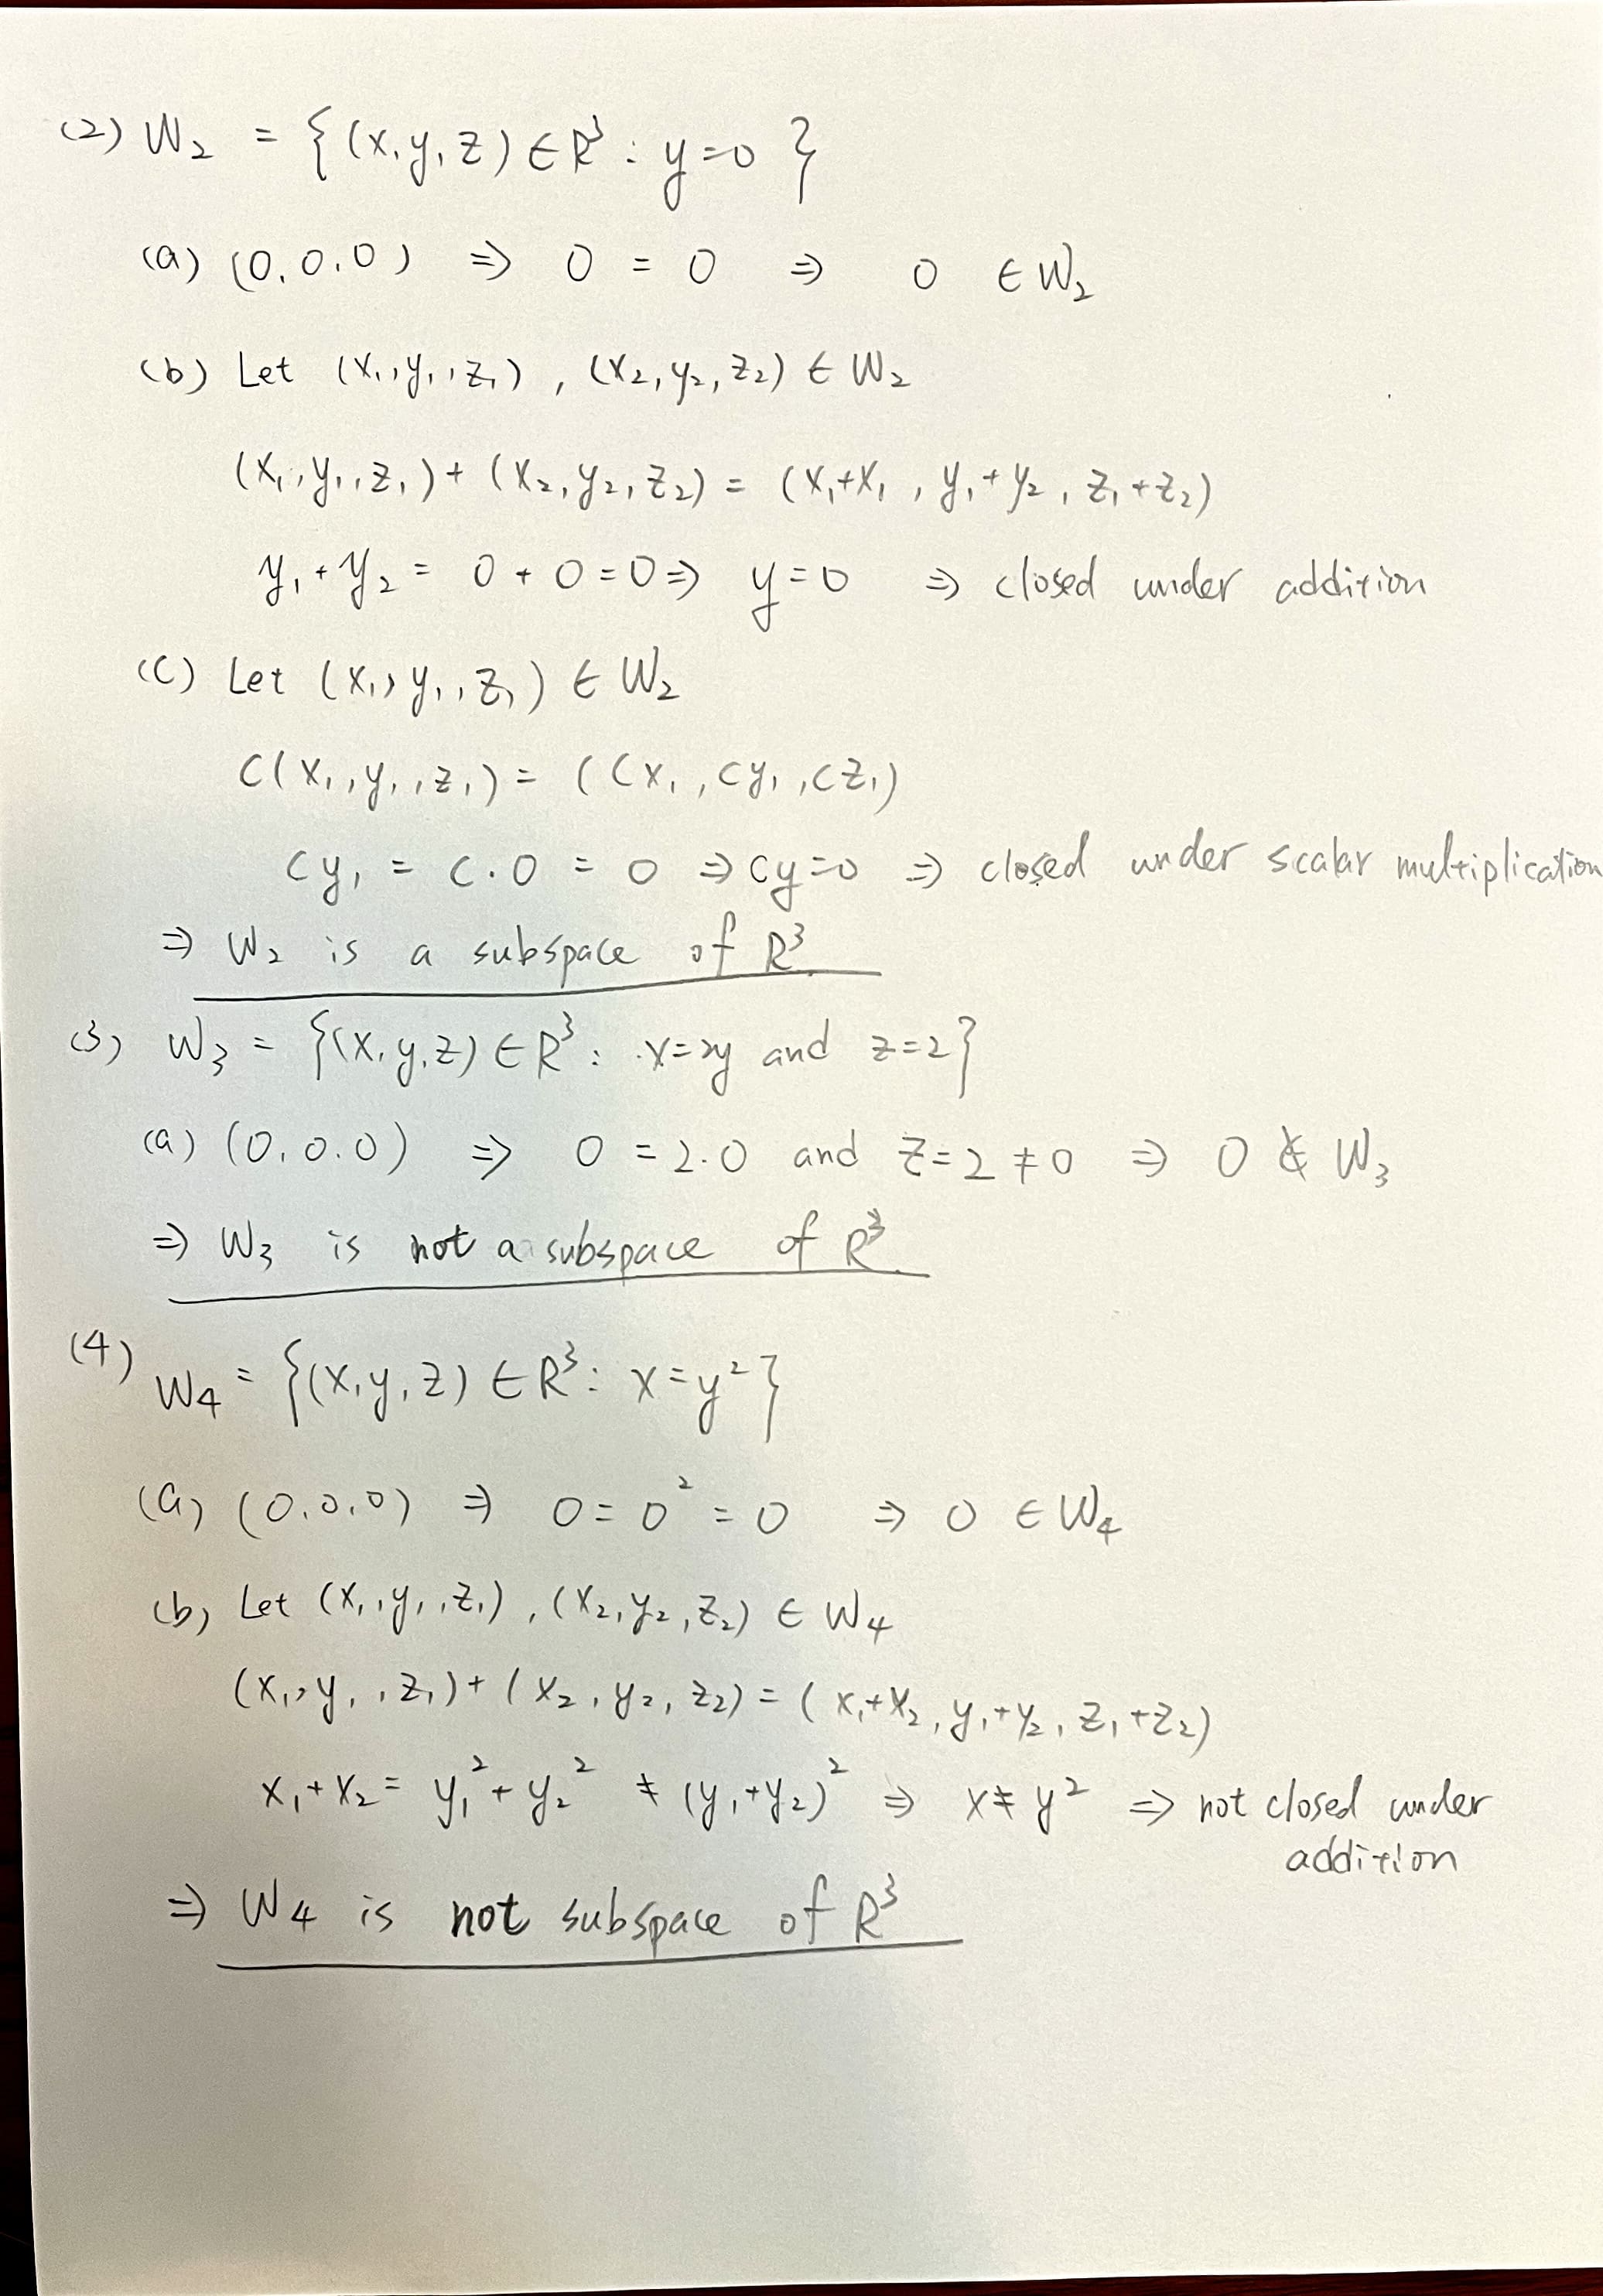 (2) W₂ = {(x,y,z) ∈ R³ : y=0}
(a) (0,0,0) ⇒ 0 = 0 ⇒ 0 ∈ W₂
(b) Let (x₁,y₁,z₁), (x₂,y₂,z₂) ∈ W₂
(x₁,y₁,z₁) + (x₂,y₂,z₂) = (x₁+x₁, y₁+y₂, z₁+z₂)
y₁+y₂ = 0+0=0 ⇒ y=0 ⇒ closed under addition
(c) Let (x₁,y₁,z₁) ∈ W₂
C(x₁,y₁,z₁) = (Cx₁,Cy₁,Cz₁)
Cy₁ = C·0 = 0 ⇒ Cy=0 ⇒ closed under scalar multiplication
⇒ W₂ is a subspace of R³
(3) W₃ = {(x,y,z) ∈ R³ : x=2y and z=2}
(a) (0,0,0) ⇒ 0 = 2·0 and z=2≠0 ⇒ 0 ∉ W₃
⇒ W₃ is not a subspace of R³
(4) W₄ = {(x,y,z) ∈ R³ : x=y²}
(a) (0,0,0) ⇒ 0=0²=0 ⇒ 0 ∈ W₄
(b) Let (x₁,y₁,z₁), (x₂,y₂,z₂) ∈ W₄
(x₁,y₁,z₁) + (x₂,y₂,z₂) = (x₁+x₂, y₁+y₂, z₁+z₂)
x₁+x₂ = y₁²+y₂² ≠ (y₁+y₂)² ⇒ x≠y² ⇒ not closed under
addition
⇒ W₄ is not subspace of R³